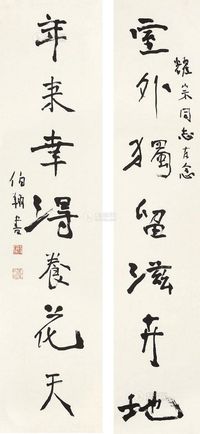 室外獨留滋卉地
耀宗同志存念
年來幸得養花天
伯翔書